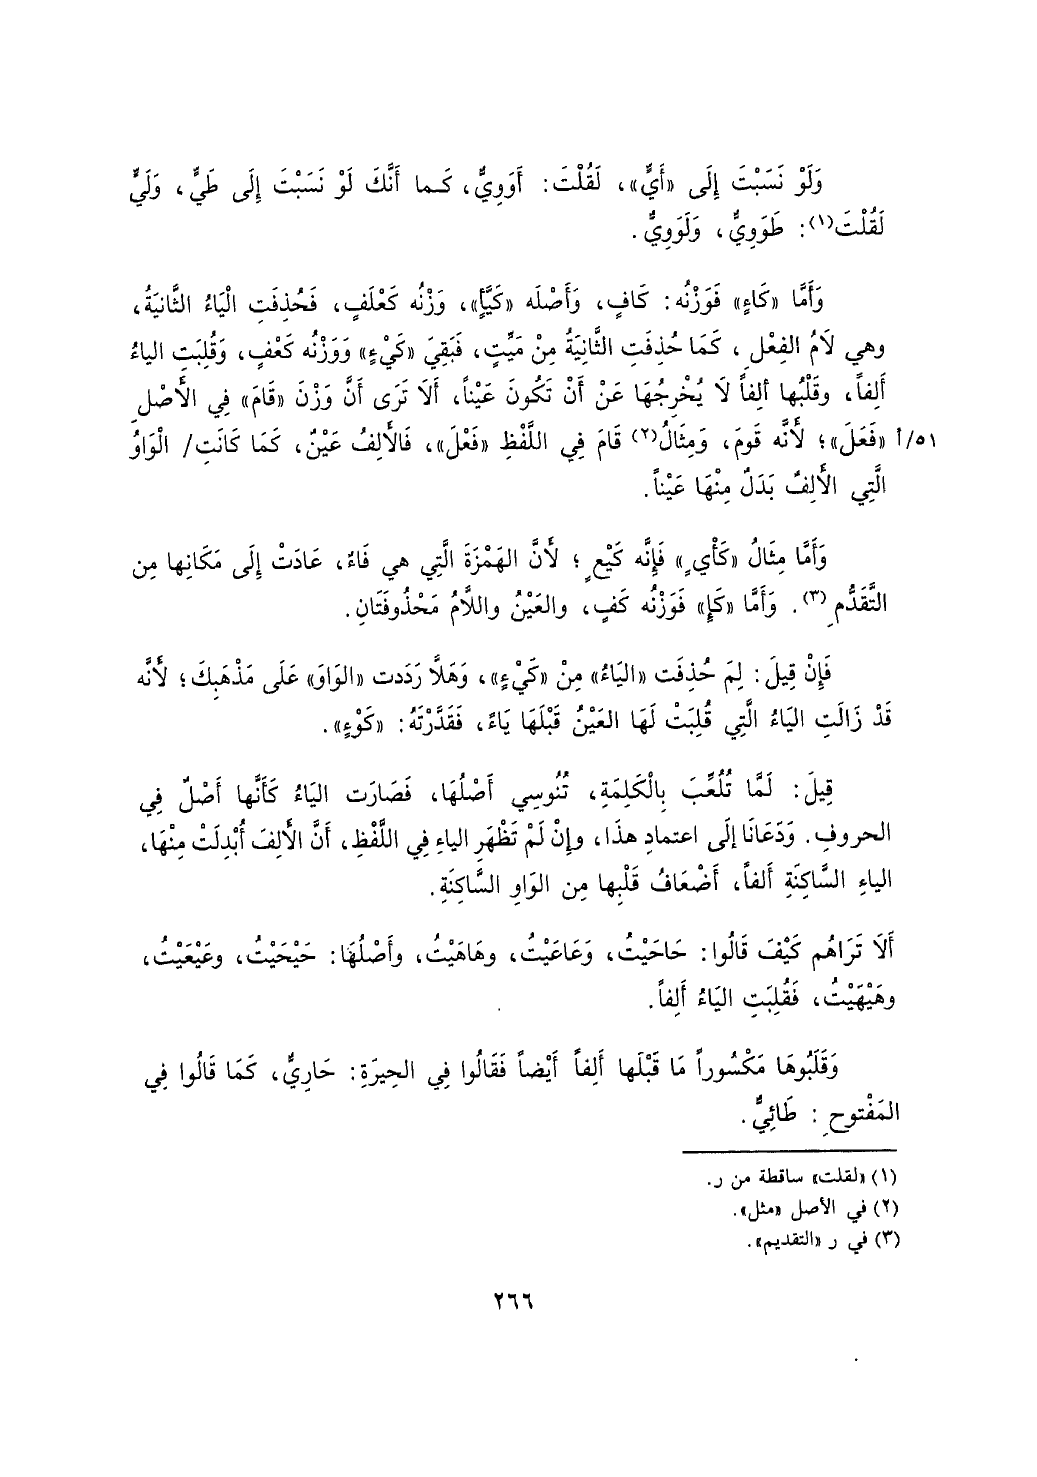 وَلَوْ نَسَبْتَ إِلَى «أَيٍّ»، لَقُلْتَ: أَوَوِيٌّ، كَـما أَنَّكَ لَوْ نَسَبْتَ إِلَى طَيٍّ، وَلَيٍّ
لَقُلْتَ(١): طَوَوِيٌّ، وَلَوَوِيٌّ.
وَأَمَّا «كَاءٍ» فَوَزْنُه: كَافٍ، وَأَصْلَه «كَيَّأٍ»، وَزْنُه كَعْلَفٍ، فَحُذِفَتِ الْيَاءُ الثَّانِيَةُ،
وهي لاَمُ الفِعْلِ، كَمَا حُذِفَتِ الثَّانِيَةُ مِنْ مَيِّتٍ، فَبَقِيَ «كَيْءٍ» وَوَزْنُه كَعْفٍ، وَقُلِبَتِ الياءُ
أَلِفاً، وقَلْبُها ألِفاً لَا يُخْرِجُهَا عَنْ أَنْ تَكُونَ عَيْناً، أَلَا تَرَى أَنَّ وَزْنَ «قَامَ» فِي الأَصْلِ
٥١/أ «فَعَلَ»؛ لأَنَّه قَومَ، وَمِثَالُ(٢) قَامَ فِي اللَّفْظِ «فَعْلَ»، فَالأَلِفُ عَيْنٌ، كَمَا كَانَتِ/ الْوَاوُ
الَّتِي الأَلِفُ بَدَلٌ مِنْهَا عَيْناً.
وَأَمَّا مِثَالُ «كَأْيٍ» فَإِنَّه كَيْعٍ؛ لأَنَّ الهَمْزَةَ الَّتِي هي فَاءٌ، عَادَتْ إِلَى مَكَانِها مِن
التَّقَدُّمِ(٣). وَأَمَّا «كَإٍ» فَوَزْنُه كَفٍ، والعَيْنُ واللَّامُ مَحْذُوفَتَانِ.
فَإِنْ قِيلَ: لِمَ حُذِفَت «اليَاءُ» مِنْ «كَيْءٍ»، وَهَلاَّ رَدَدت «الوَاوَ» عَلَى مَذْهَبِكَ؛ لأَنَّه
قَدْ زَالَتِ اليَاءُ الَّتِي قُلِبَتْ لَهَا العَيْنُ قَبْلَهَا يَاءً، فَقَدَّرْتَهُ: «كَوْءٍ».
قِيلَ: لَمَّا تُلُعِّبَ بِالْكَلِمَةِ، تُنُوسِي أَصْلُهَا، فَصَارَت اليَاءُ كَأَنَّها أَصْلٌ فِي
الحروفِ. وَدَعَانَا إلَى اعتمادِ هذَا، وإِنْ لَمْ تَظْهَرِ الياءِ فِي اللَّفْظِ، أَنَّ الأَلِفَ أُبْدِلَتْ مِنْهَا،
الياءِ السَّاكِنَةِ أَلفاً، أَضْعَافُ قَلْبِها مِن الوَاوِ السَّاكِنَةِ.
أَلاَ تَرَاهُم كَيْفَ قَالُوا: حَاحَيْتُ، وَعَاعَيْتُ، وهَاهَيْتُ، وأَصْلُهَا: حَيْحَيْتُ، وعَيْعَيْتُ،
وهَيْهَيْتُ، فَقُلِبَتِ اليَاءُ أَلِفاً.
وَقَلَبُوهَا مَكْسُوراً مَا قَبْلَها أَلِفاً أَيْضاً فَقَالُوا فِي الحِيرَةِ: حَارِيٌّ، كَمَا قَالُوا فِي
المَفْتوحِ: طَائِيٌّ.
(١) «لقلت» ساقطة من ر.
(٢) في الأصل «مثل».
(٣) في ر «التقديم».
٢٦٦